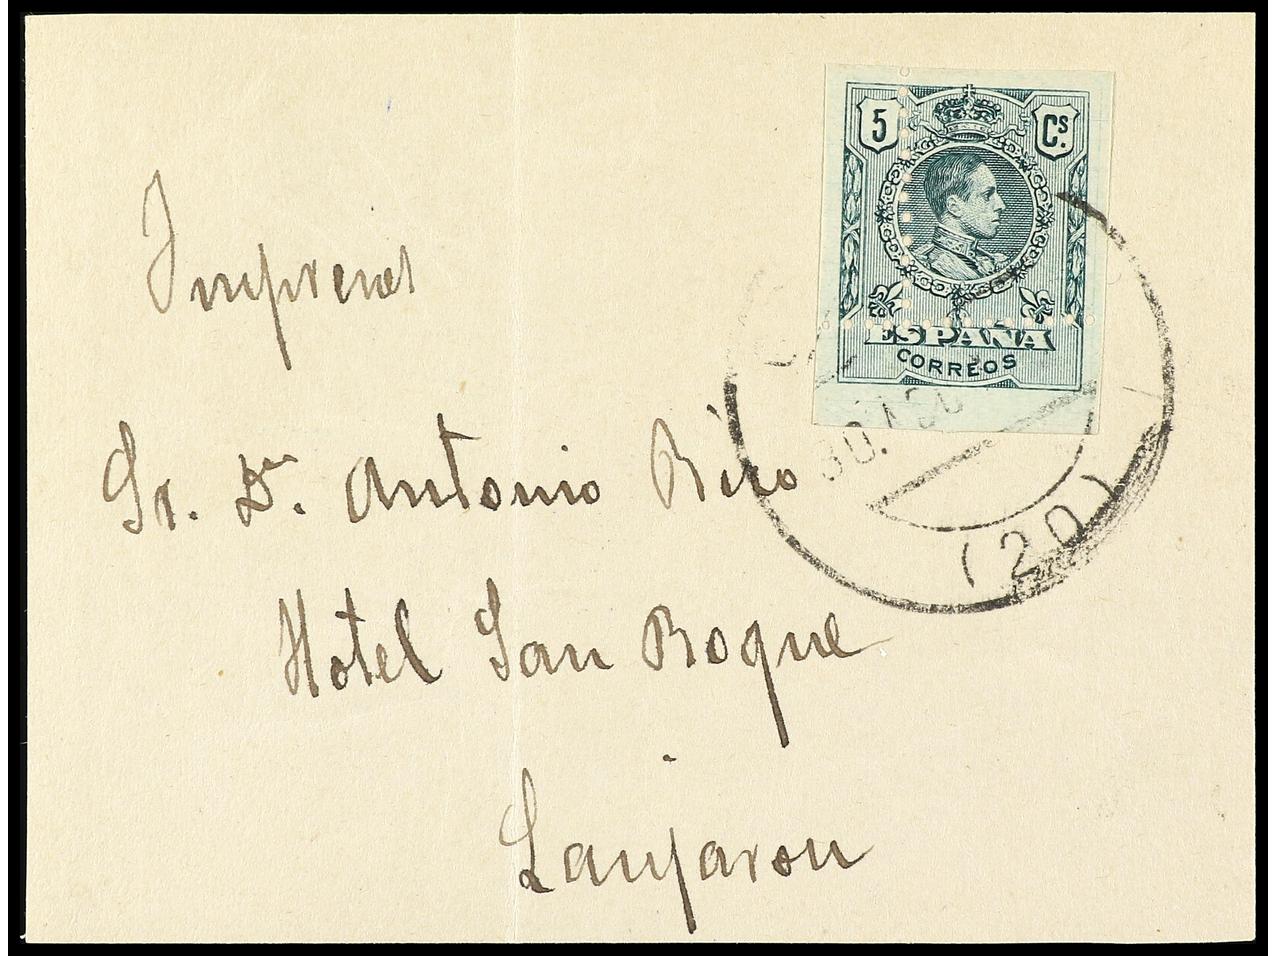 5 Cs.
ESPAÑA
CORREOS
Impresos
Sr. Dn. Antonio Rico
Hotel San Roque
Lanjaron
30.
(20)